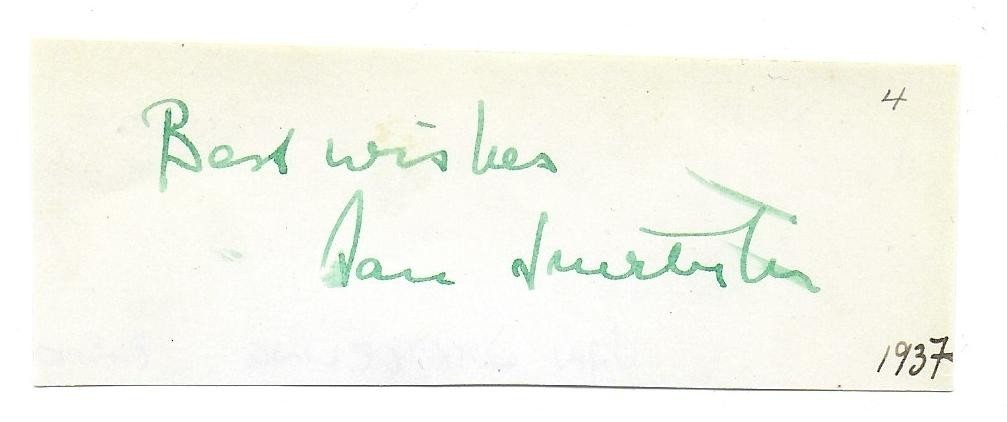 4
Best wishes
Jan Smeterlin
1937